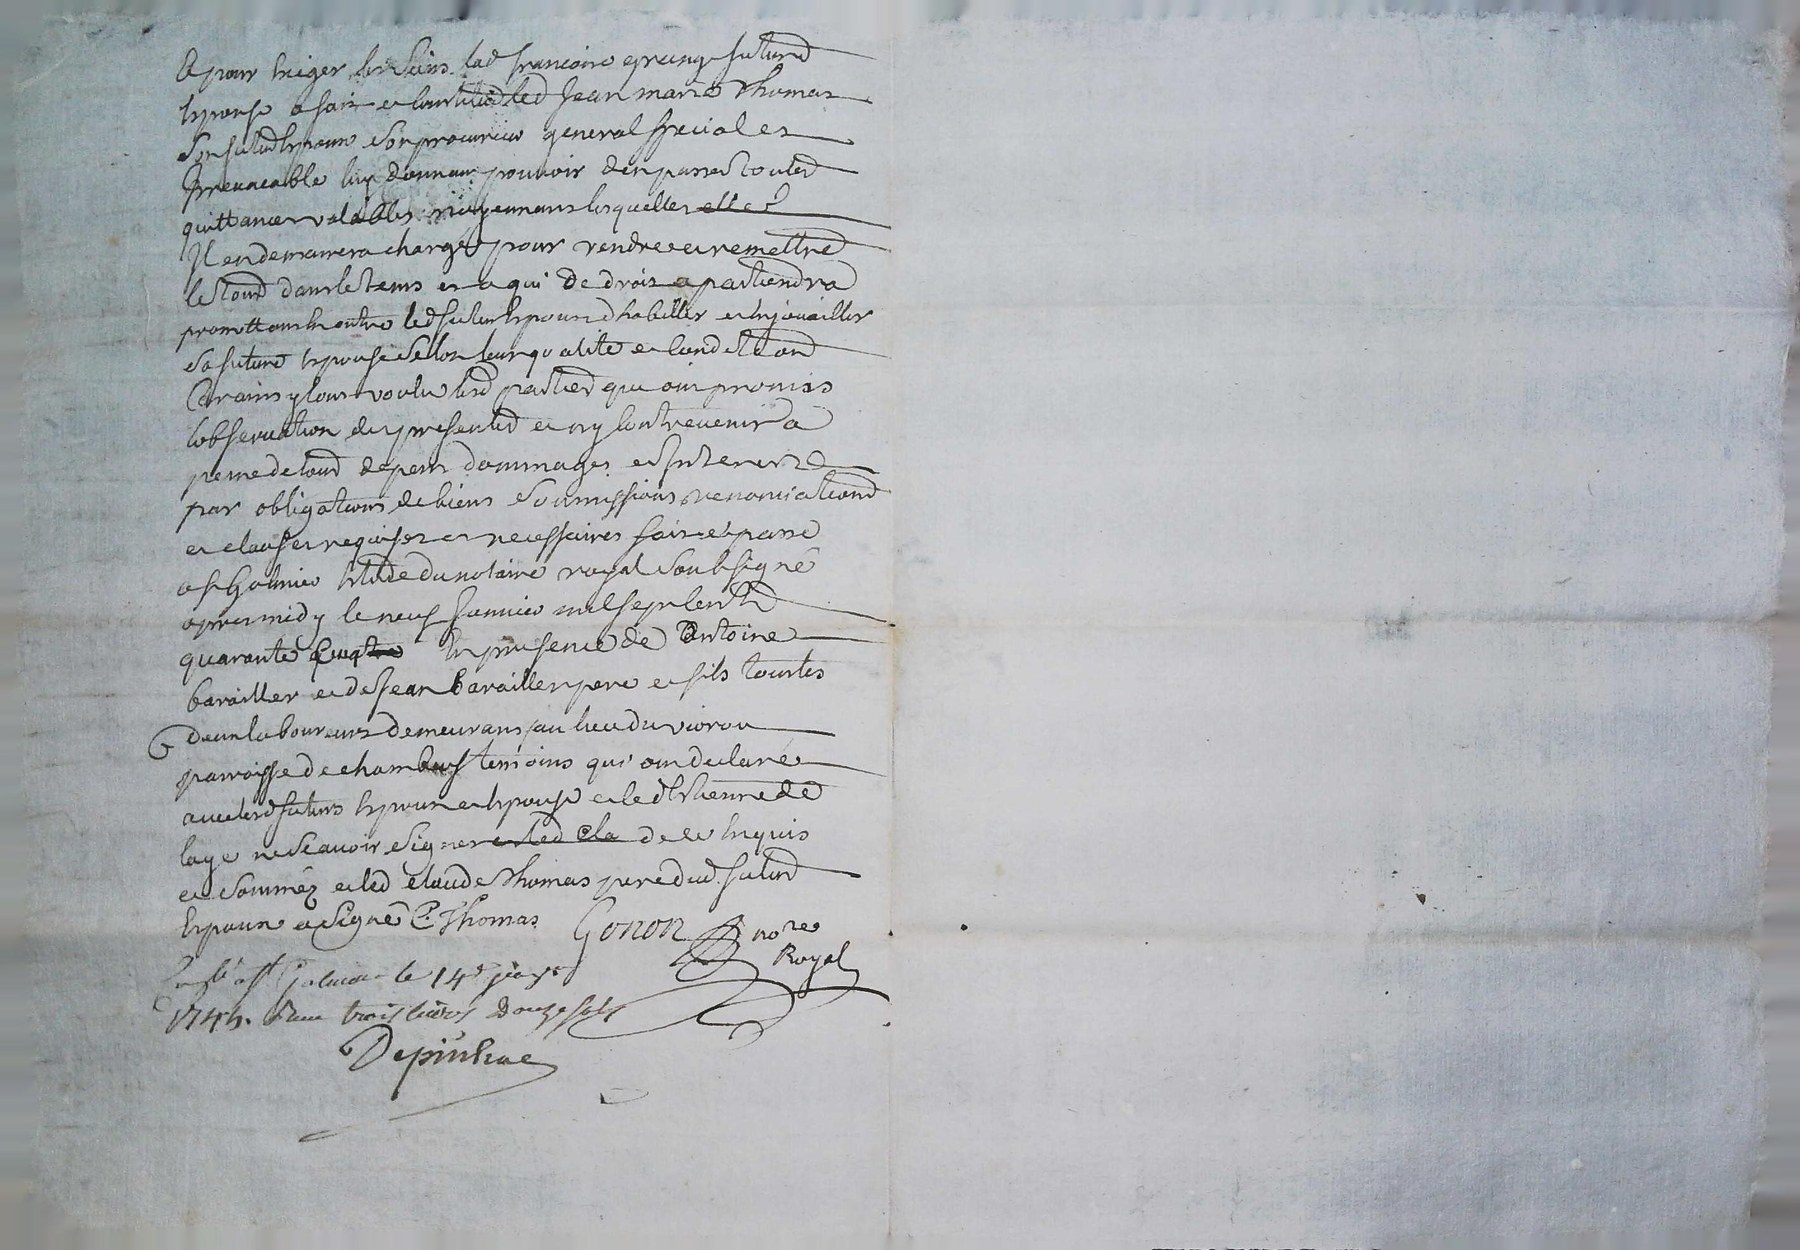 & pour exiger les siens lad francoise epreuve future
Espouse a fait et constitué led Jean marie Thomas
son futur Epoux son procureur general special et
Irrevocable luy donnant pouvoir d'en passer toutes
quittances valables moyennans lesquelles elles
Il en demeurera chargé pour rendre et remettre
le tout dans le tems et a qui de droit apartiendra
promettant en outre led futur Epoux d'habiller et Enjouailler
sa future Epouse sellon leur qualité et condition
Car ainsy l'ont voulu lesd parties qui ont promis
l'observation des presentes et ny Contrevenir a
peine de tous depens dommages et Interets
par obligations de biens soumissions renonciations
et clauses requises et necessaires fait et passé
a st Galmier Etude du notaire royal soubsigné
apres midy le neuf Janvier mil sept cent
quarante En presence de Antoine
barailler et de Jean barailler pere et fils tous les
deux laboureurs demeurans au lieu du
parroisse de chambeuf temoins qui ont declaré
avec lesd futurs Epoux et Epouse et led Estienne de
laye ne sçavoir signer et led cla de ce Enquis
et sommés et led claude Thomas pere dud futur
Epoux a signé C. Thomas Gonon nore
Royal
st Galmier le 14e janvr
174 trois livres douze sols
Depinhac